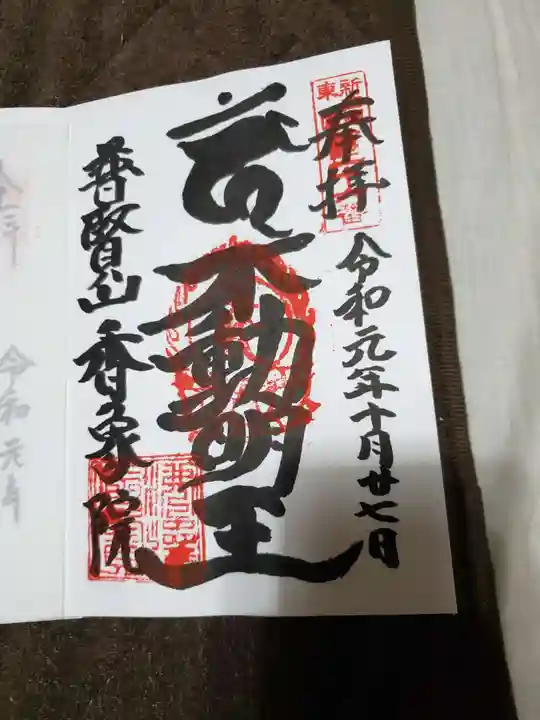 奉拝
令和元年十月廿七日
不動明王
普賢山 香象院
新
東
令和元年